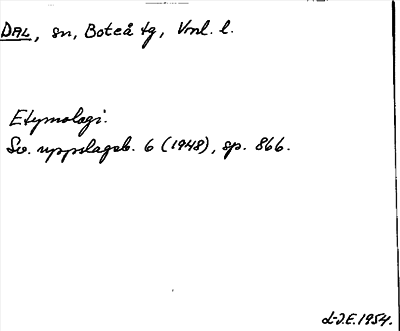 DAL, sn, Boteå tg, Vnl. l.
Etymologi.
Sv. uppslagsb. 6 (1948), sp. 866.
L-J.E. 1954.